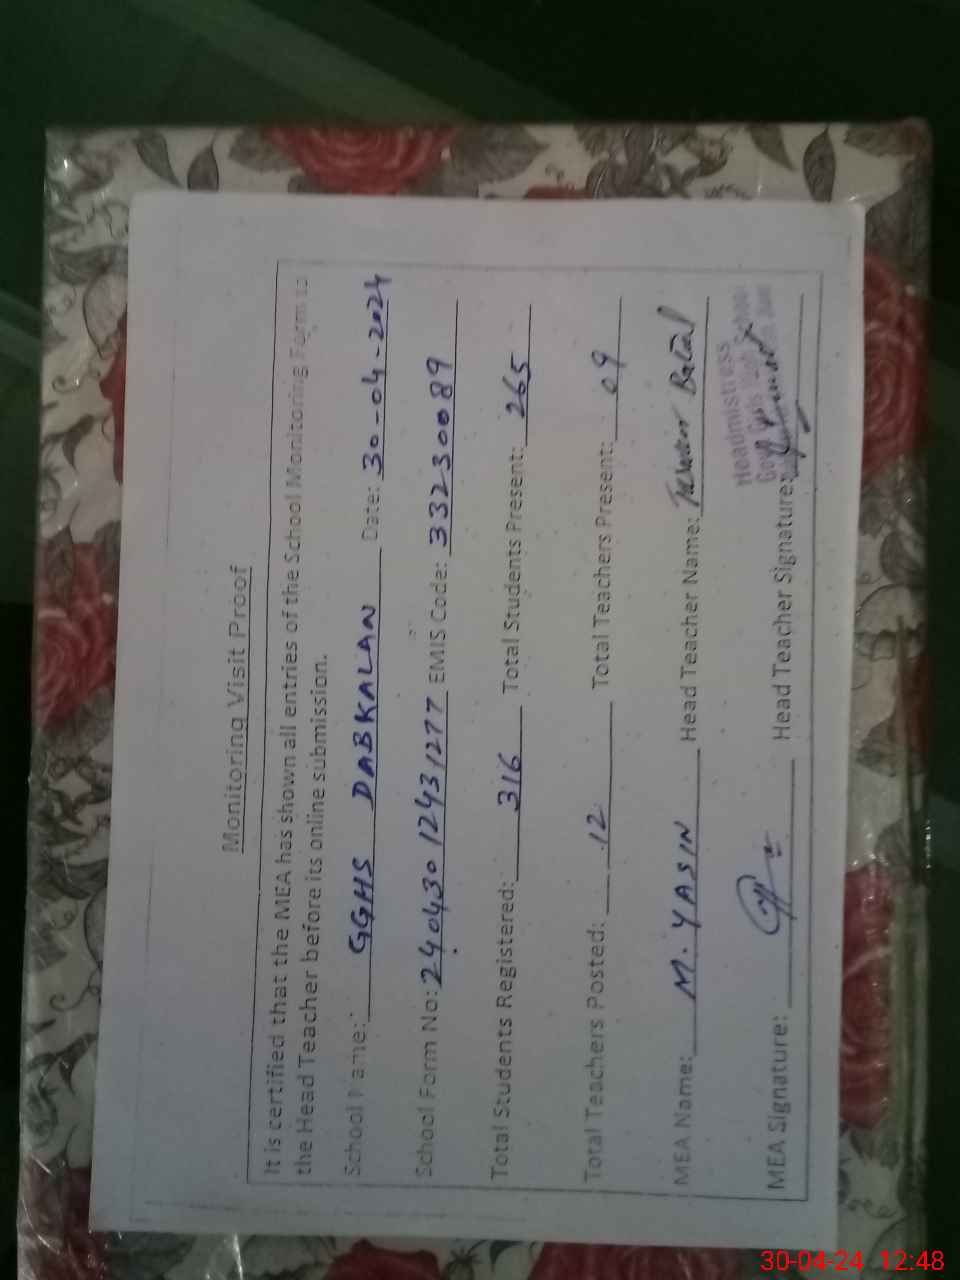 Monitoring Visit Proof
It is certified that the MEA has shown all entries of the School Monitoring Form to
the Head Teacher before its online submission.
School Name: GGHS DABKALAN Date: 30-04-2024
School Form No: 240430 1243 1277 EMIS Code: 33230089
Total Students Registered: 316 Total Students Present: 265
Total Teachers Posted: 12 Total Teachers Present: 09
MEA Name: M. YASIN Head Teacher Name: Batool
Headmistress
Govt. Girls High School
MEA Signature: Head Teacher Signature:
30-04-24 12:48